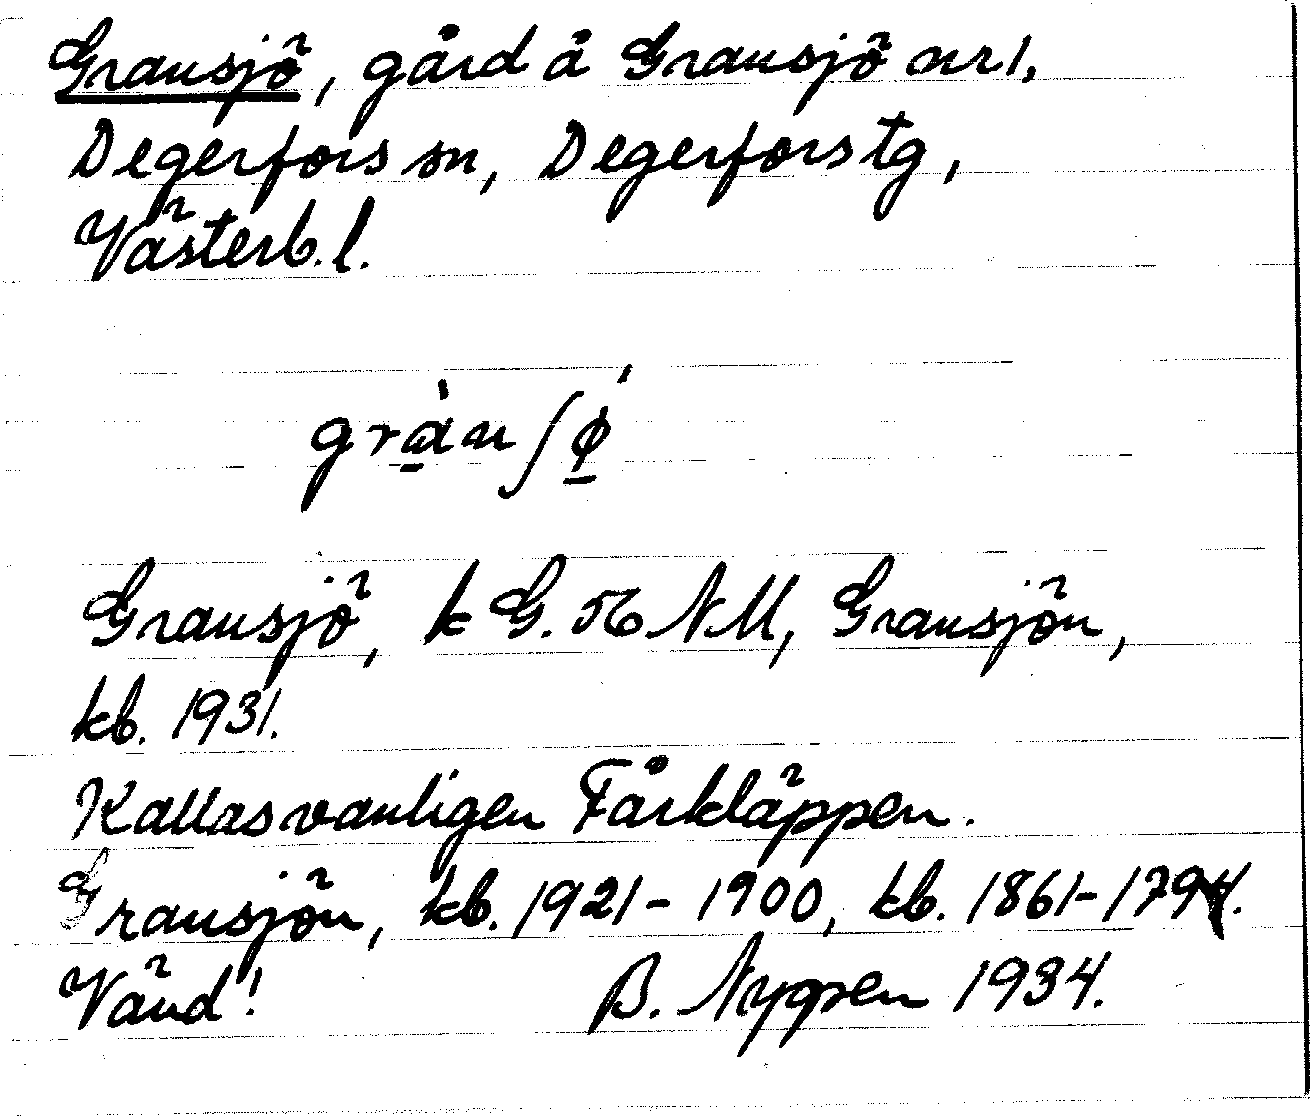 Gransjö, gård å Gransjö nr 1,
Degerfors sn, Degerfors tg,
Västerb. l.
grànʃǿ
Gransjö, k G. 56 NM, Gransjön,
kb. 1931.
Kallas vanligen Fårkläppen.
Gransjön, kb. 1921-1900, kb. 1861-1794.
Vänd! B. Nygren 1934.